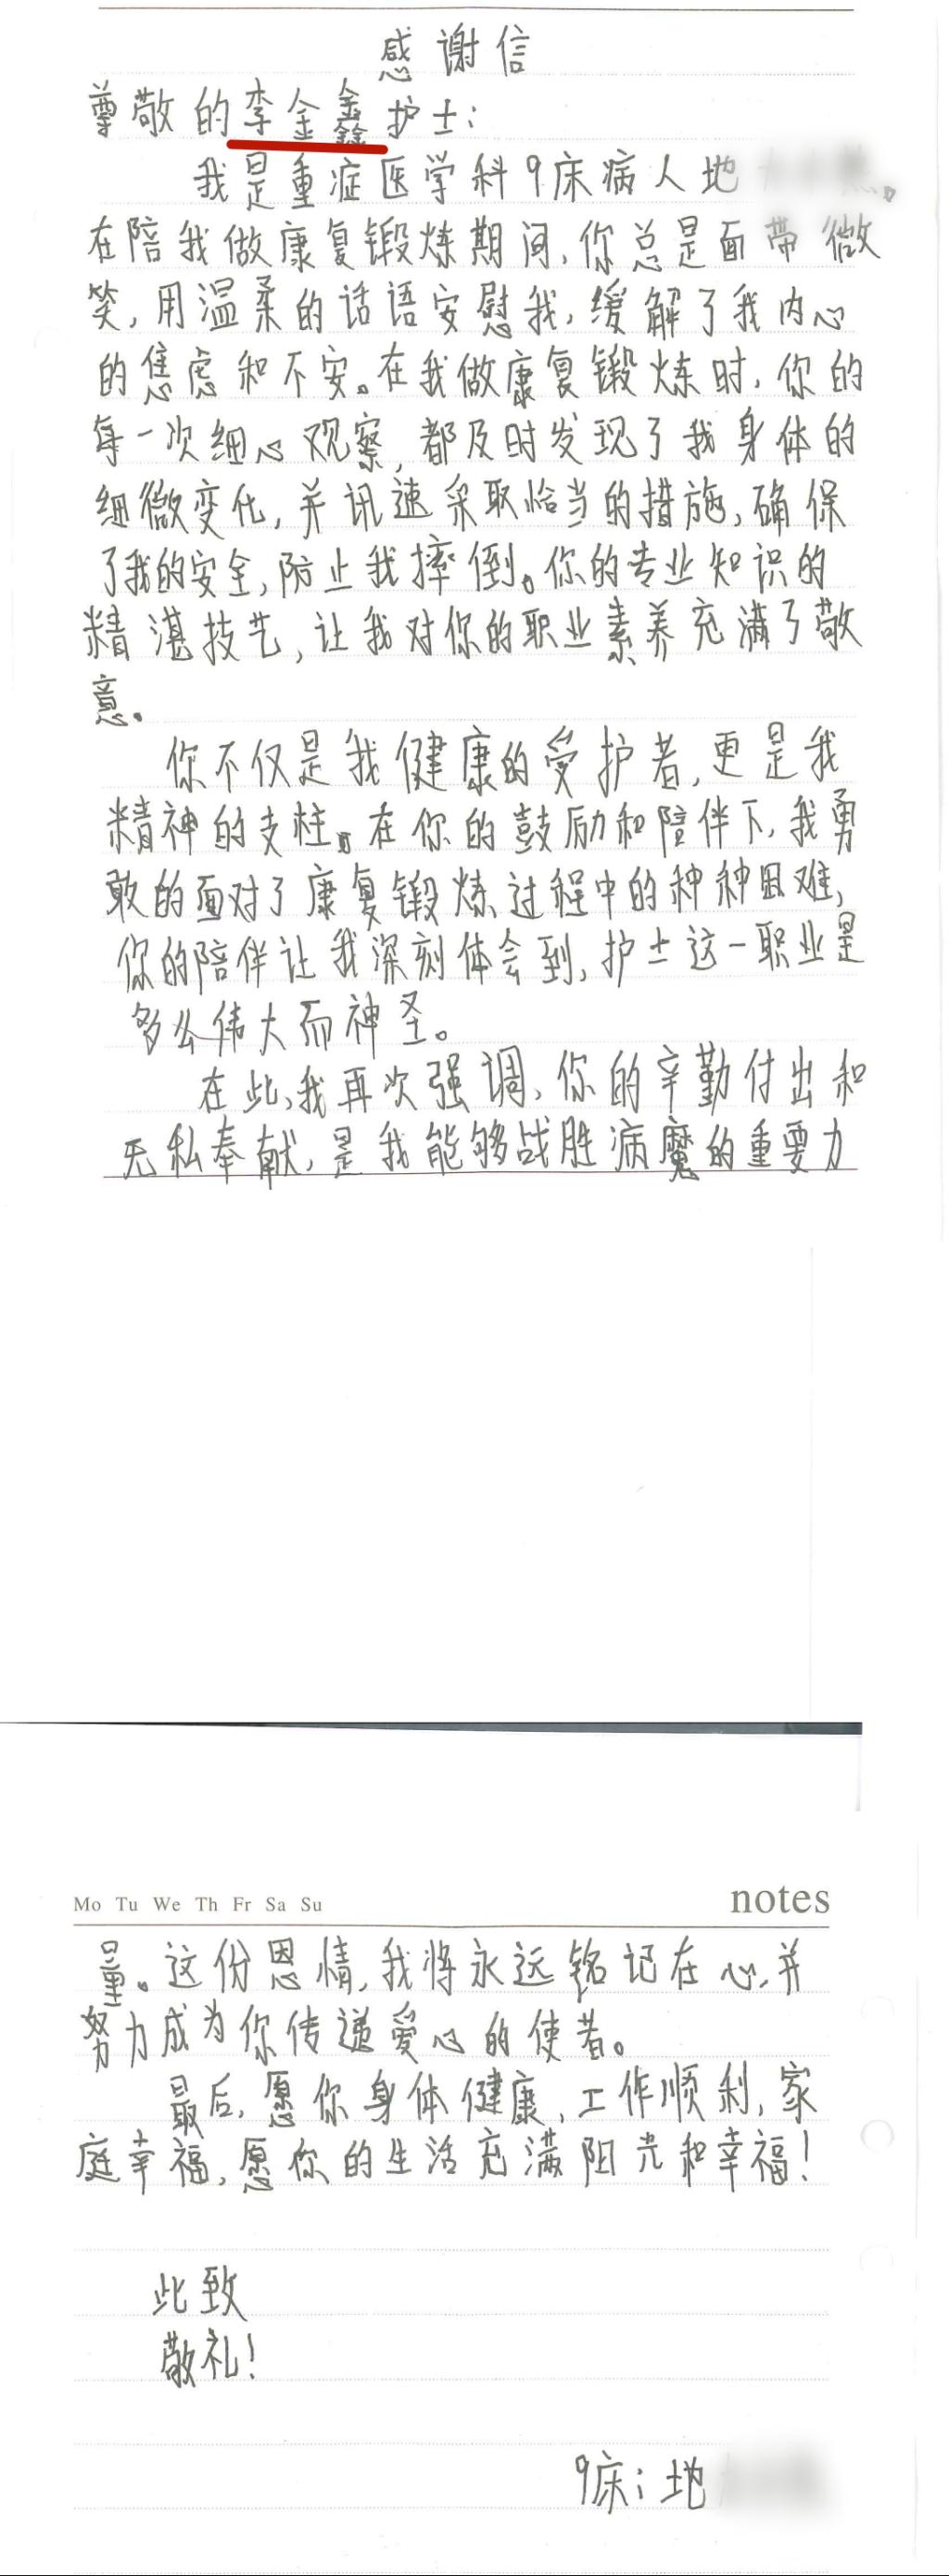 感谢信
尊敬的李金鑫护士：
我是重症医学科9床病人地
在陪我做康复锻炼期间，你总是面带微
笑，用温柔的话语安慰我，缓解了我内心
的焦虑和不安。在我做康复锻炼时，你的
每一次细心观察，都及时发现了我身体的
细微变化，并讯速采取恰当的措施，确保
了我的安全，防止我摔倒。你的专业知识的
精湛技艺，让我对你的职业素养充满了敬
意。
你不仅是我健康的受护者，更是我
精神的支柱。在你的鼓励和陪伴下，我勇
敢的面对了康复锻炼过程中的种种困难，
你的陪伴让我深刻体会到，护士这一职业是
多么伟大而神圣。
在此，我再次强调，你的辛勤付出和
无私奉献，是我能够战胜病魔的重要力
Mo Tu We Th Fr Sa Su notes
量。这份恩情，我将永远铭记在心，并
努力成为你传递爱心的使者。
最后，愿你身体健康，工作顺利，家
庭幸福，愿你的生活充满阳光和幸福！
此致
敬礼！
9床：地